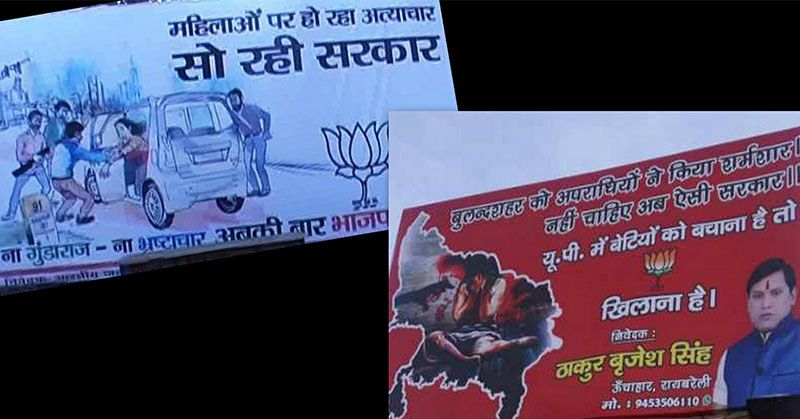 महिलाओं पर हो रहा अत्याचार
सो रही सरकार
91
ना गुंडाराज - ना भ्रष्टाचार अबकी बार भाजपा
बुलन्दशहर को अपराधियों ने किया शर्मशार।
नहीं चाहिए अब ऐसी सरकार।।
यू.पी. में बेटियों को बचाना है तो
खिलाना है।
निवेदक :
ठाकुर बृजेश सिंह
ऊँचाहार, रायबरेली
मो. : 9453506110